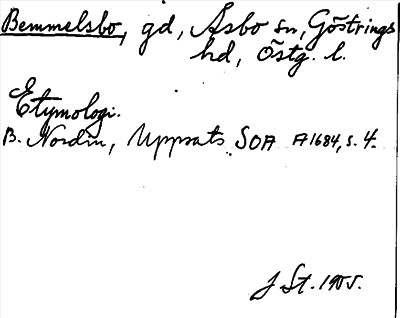 Bemmelsbo, gd, Åsbo sn, Göstrings
hd, Östg. l.
Etymologi.
B. Nordin, Uppsats SOA A1684, s. 4.
J St. 1955.